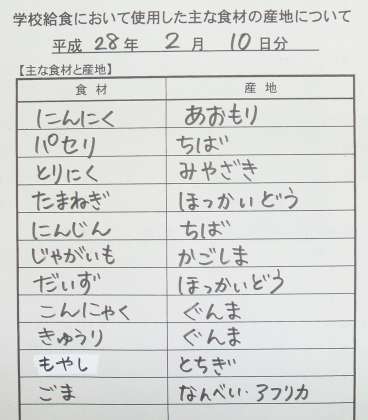 学校給食において使用した主な食材の産地について
平成 28 年 2 月 10 日分
【主な食材と産地】
食材 産地
にんにく あおもり
パセリ ちば
とりにく みやざき
たまねぎ ほっかいどう
にんじん ちば
じゃがいも かごしま
だいず ほっかいどう
こんにゃく ぐんま
きゅうり ぐんま
もやし とちぎ
ごま なんべい・アフリカ